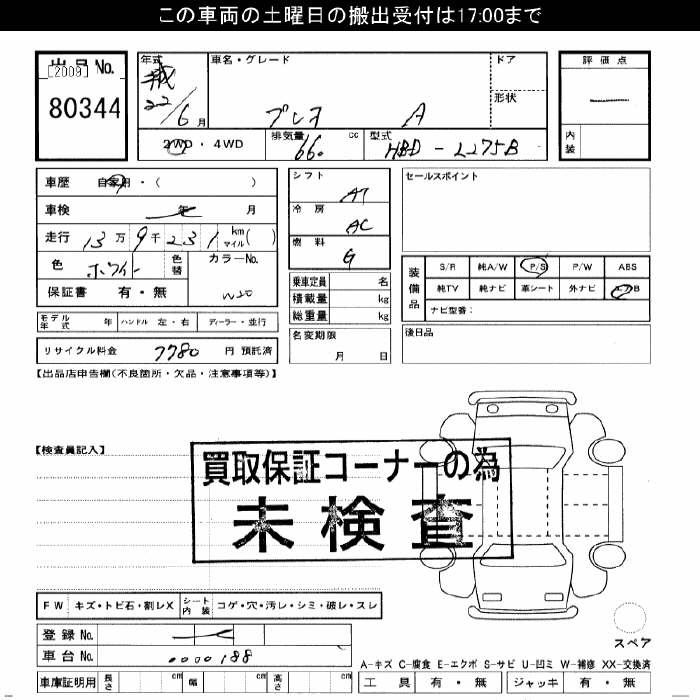 この車両の土曜日の搬出受付は17:00まで
出品No.
[2009]
80344
年式
22/6月
車名・グレード
プレオ A
ドア
形状
評価点
内装
2WD・4WD
排気量 660 cc
型式 HBD-L275B
車歴 自家用・( )
車検 年 月
走行 13万9千231 km マイル( )
色 ホワイト 色替
カラーNo.
W20
保証書 有・無
シフト AT
冷房 AC
燃料 G
乗車定員 名
積載量 kg
総重量 kg
名変期限
月 日
セールスポイント
装備品
S/R 純A/W P/S P/W ABS
純TV 純ナビ 革シート 外ナビ エアB
ナビ型車:
後日品
モデル年式 年 ハンドル 左・右 ディーラー・並行
リサイクル料金 7780 円 預託済
【出品店申告欄(不良箇所・欠品・注意事項等)】
【検査員記入】
買取保証コーナーの為
未検査
FW キズ・トビ石・割レX シート内装 コゲ・穴・汚レ・シミ・破レ・スレ
登録No.
車台No. 0000188
スペア
A-キズ C-腐食 E-エクボ S-サビ U-凹ミ W-補修 XX-交換済
車庫証明用 長さ cm 幅 cm 高さ cm
工具 有・無 ジャッキ 有・無